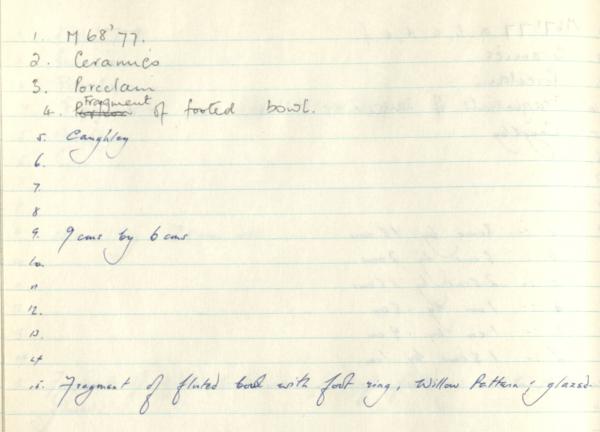 1. M 68'77.
2. Ceramics
3. Porcelain
4. Fragment of footed bowl.
5. Caughley
6.
7.
8
9. 9 cms by 6 cms
10.
11
12.
13.
14
15. Fragment of fluted bowl with foot ring, Willow Pattern; glazed.